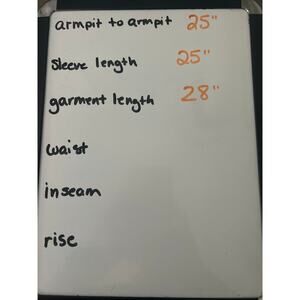 armpit to armpit 25"
sleeve length 25"
garment length 28"
waist
inseam
rise